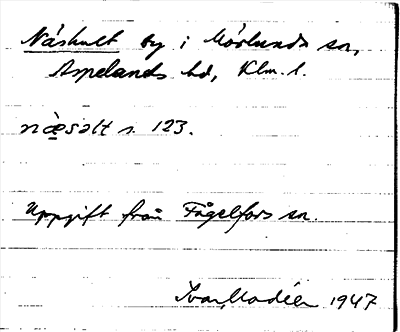 Näshult by i Mörlunda sn,
Aspelands hd, Klm. l.
næ̀salt s. 123.
Uppgift från Fågelfors sn.
Ivar Modéer 1947